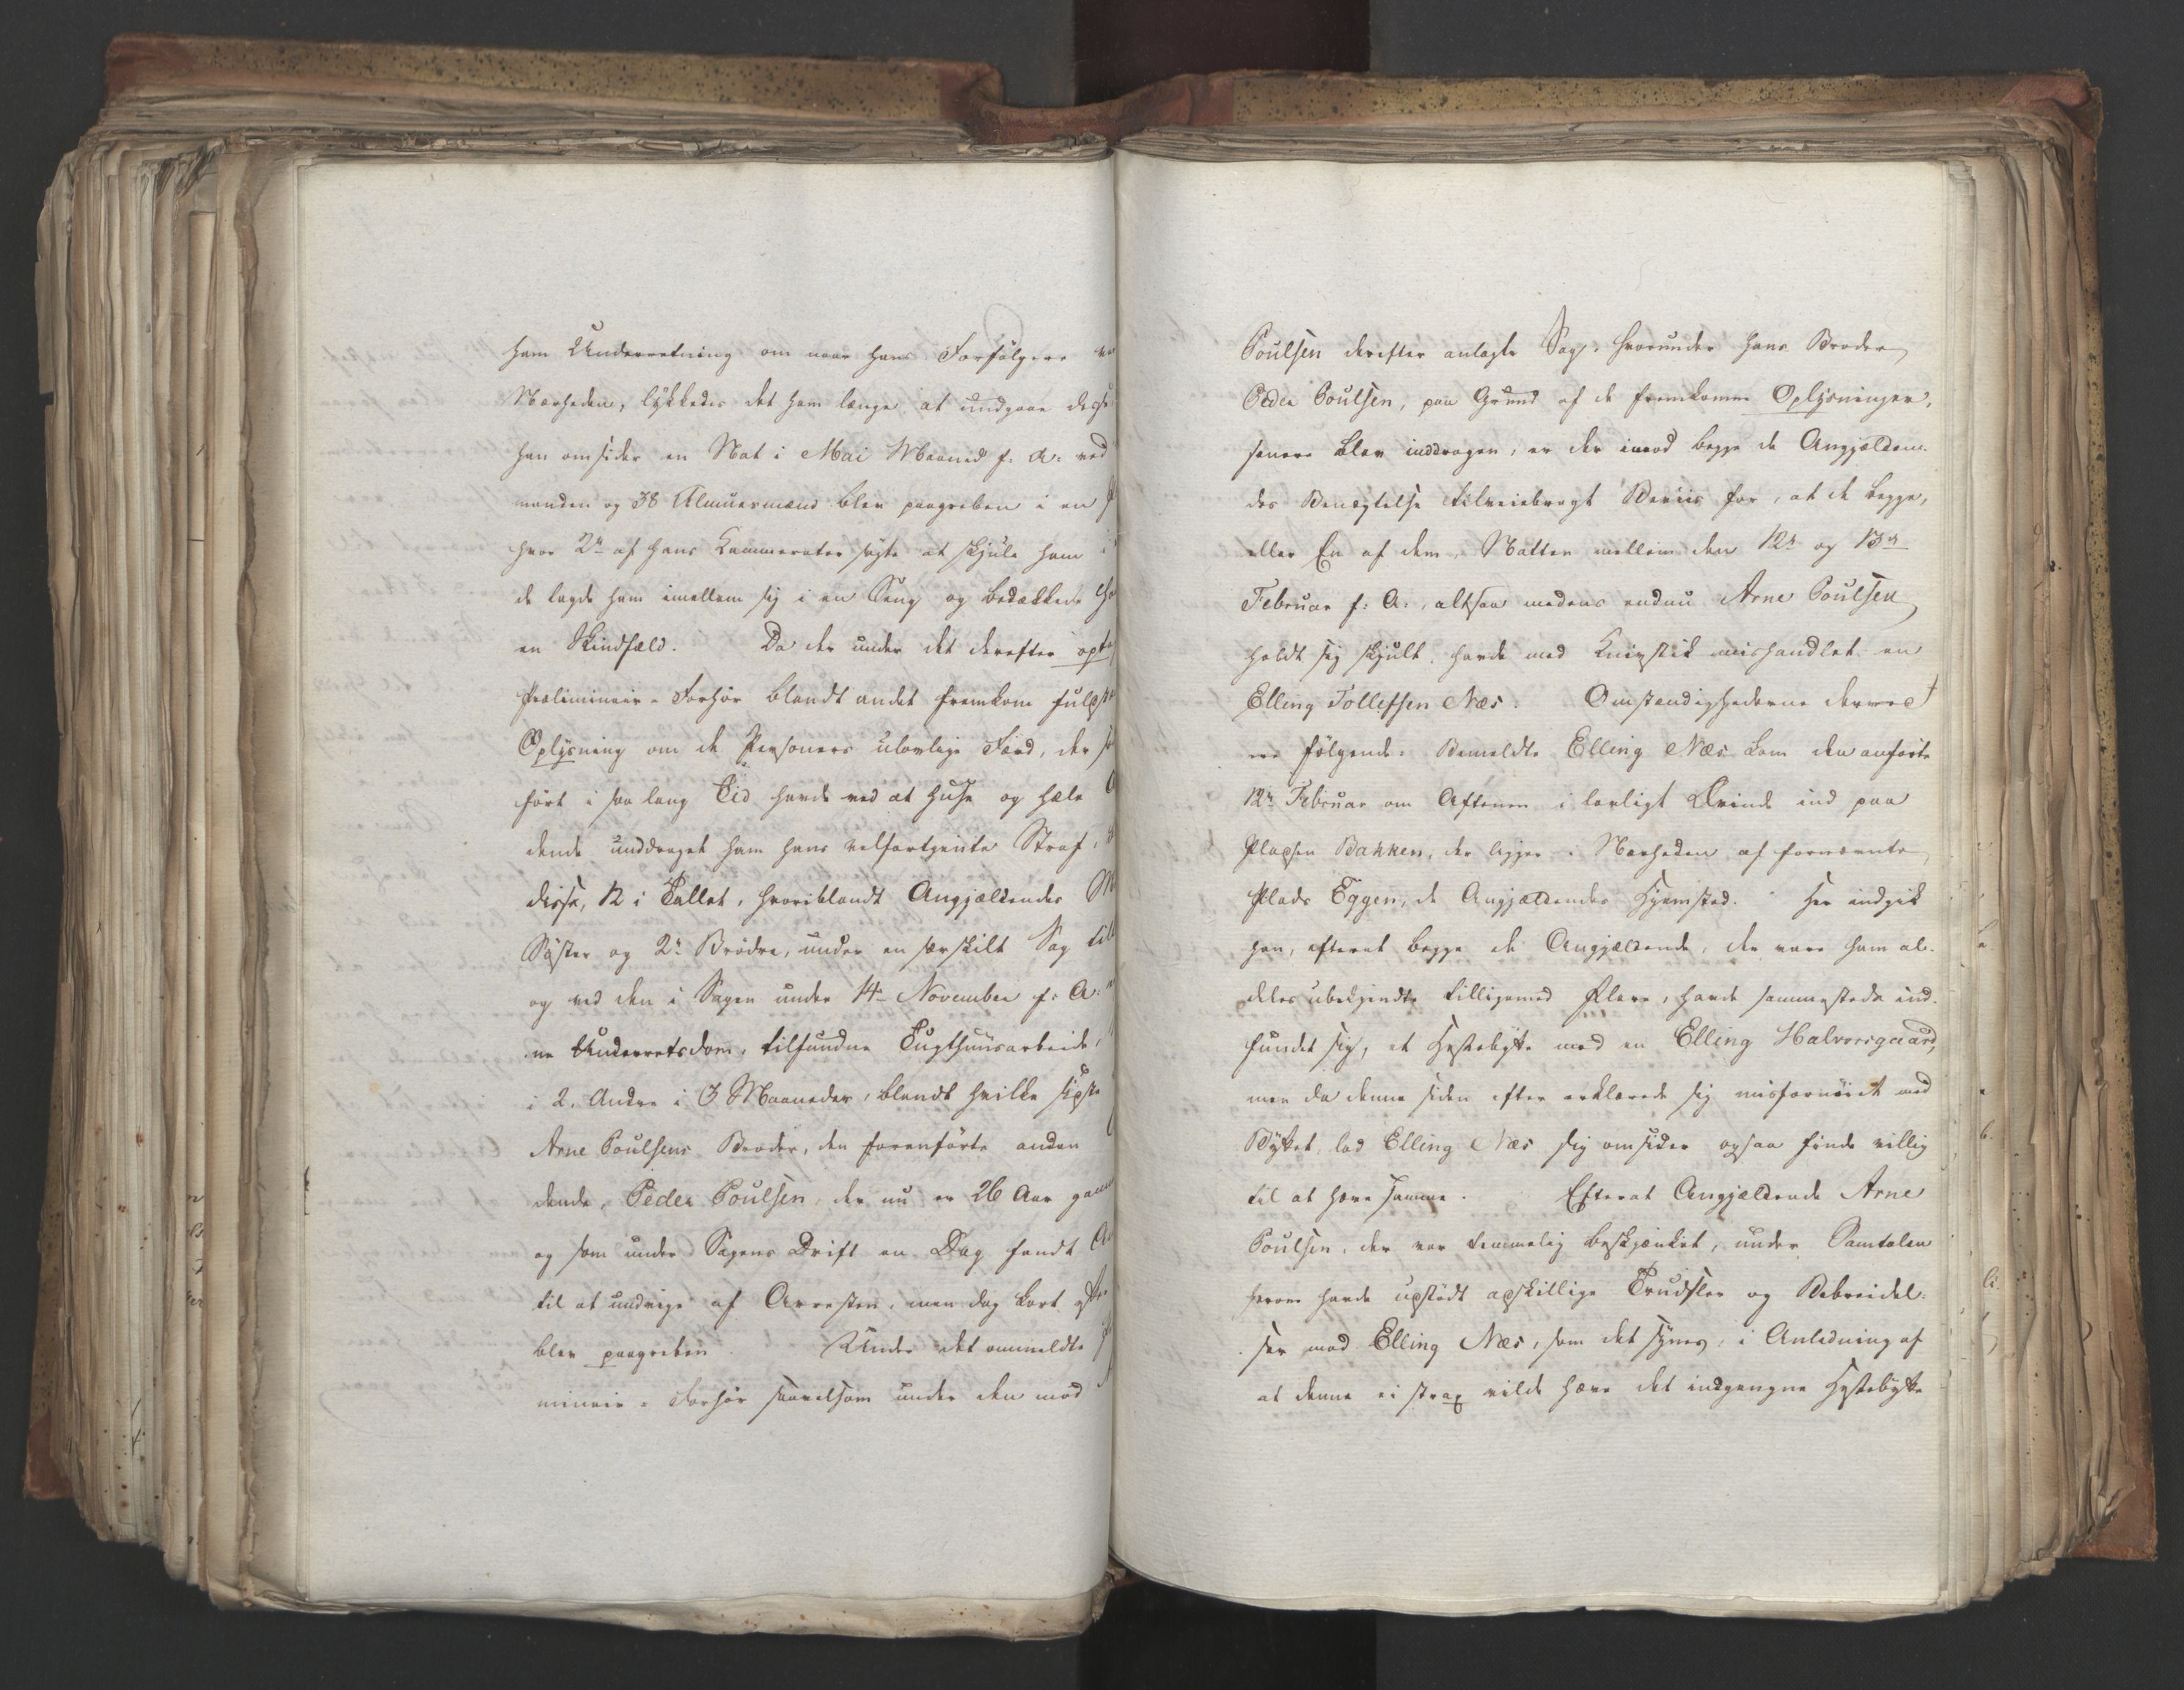 ham Underretning om naar hans Forfølgere
Nærheden, lykkedes det ham længe at undgaae disse
han omsider en Nat i Mai Maaned f: A: ved
manden og 38 Almuesmænd blev paagreben i en
hvor 2de af hans Kammerater søgte at skjule ham i
de lagde ham imellem sig i en Seng og bedækkede
en Skindfæld. Da der under det derefter opta
Præliminair-Forhør blandt andet fremkom fuld
Oplysning om de Personers ulovlige Færd, der
ført i saa lang Tid havde ved at huse og hæle
dende unddraget ham hans velfortjente Straf,
disse, 12 i Tallet, hvoriblandt Angjældendes
Søster og 2de Brødre, under en særskilt Sag till
og ved den i Sagen under 14de November f: A:
ne Underretsdom, tilfundne Tugthuusarbeide,
i 2. Andre i 3 Maaneder, blandt hvilke sidste
Arne Poulsens Broder, den foranførte anden
dende, Peder Poulsen, der nu er 26 Aar gam
og som under Sagens Drift en Dag fandt
til at undvige af Arresten, men dog kort efter
blev paagreben. Under det ommeldte
minair-Forhør saavelsom under den mod
Poulsen derefter anlagte Sag, hvorunder hans Broder
Peder Poulsen, paa Grund af de fremkomne Oplysninger,
senere blev inddragen, er der imod begge de Angjælden-
des Benægtelse tilveiebragt Beviis for, at de begge,
eller En af dem, Natten mellem den 12te og 13de
Februar f: A:, altsaa medens endnu Arne Poulsen
holdt sig skjult, havde med Knivstik mishandlet en
Elling Tollefsen Næs. Omstændighederne derved
ere følgende: Bemeldte Elling Næs kom den anførte
12te Februar om Aftenen i lovligt Ærinde ind paa
Pladsen Bakken, der ligger i Nærheden af fornævnte
Plads Eggen, de Angjældendes Hjemsted. Her indgik
han, efterat begge de Angjældende, der vare ham al-
deles ubekjendte tilligemed Flere, havde sammesteds ind-
fundet sig, et Hestebytte med en Elling Halvorsgaard,
men da denne siden efter erklærede sig misfornøiet med
Byttet, lod Elling Næs sig omsider ogsaa finde villig
til at hæve samme. Efterat Angjældende Arne
Poulsen, der var temmelig beskjænket, under Samtalen
herom havde udstødt adskillige Trudsler og Bebreidel-
ser mod Elling Næs, som det synes, i Anledning af
at denne ei strax vilde hæve det indgangne Hestebytte